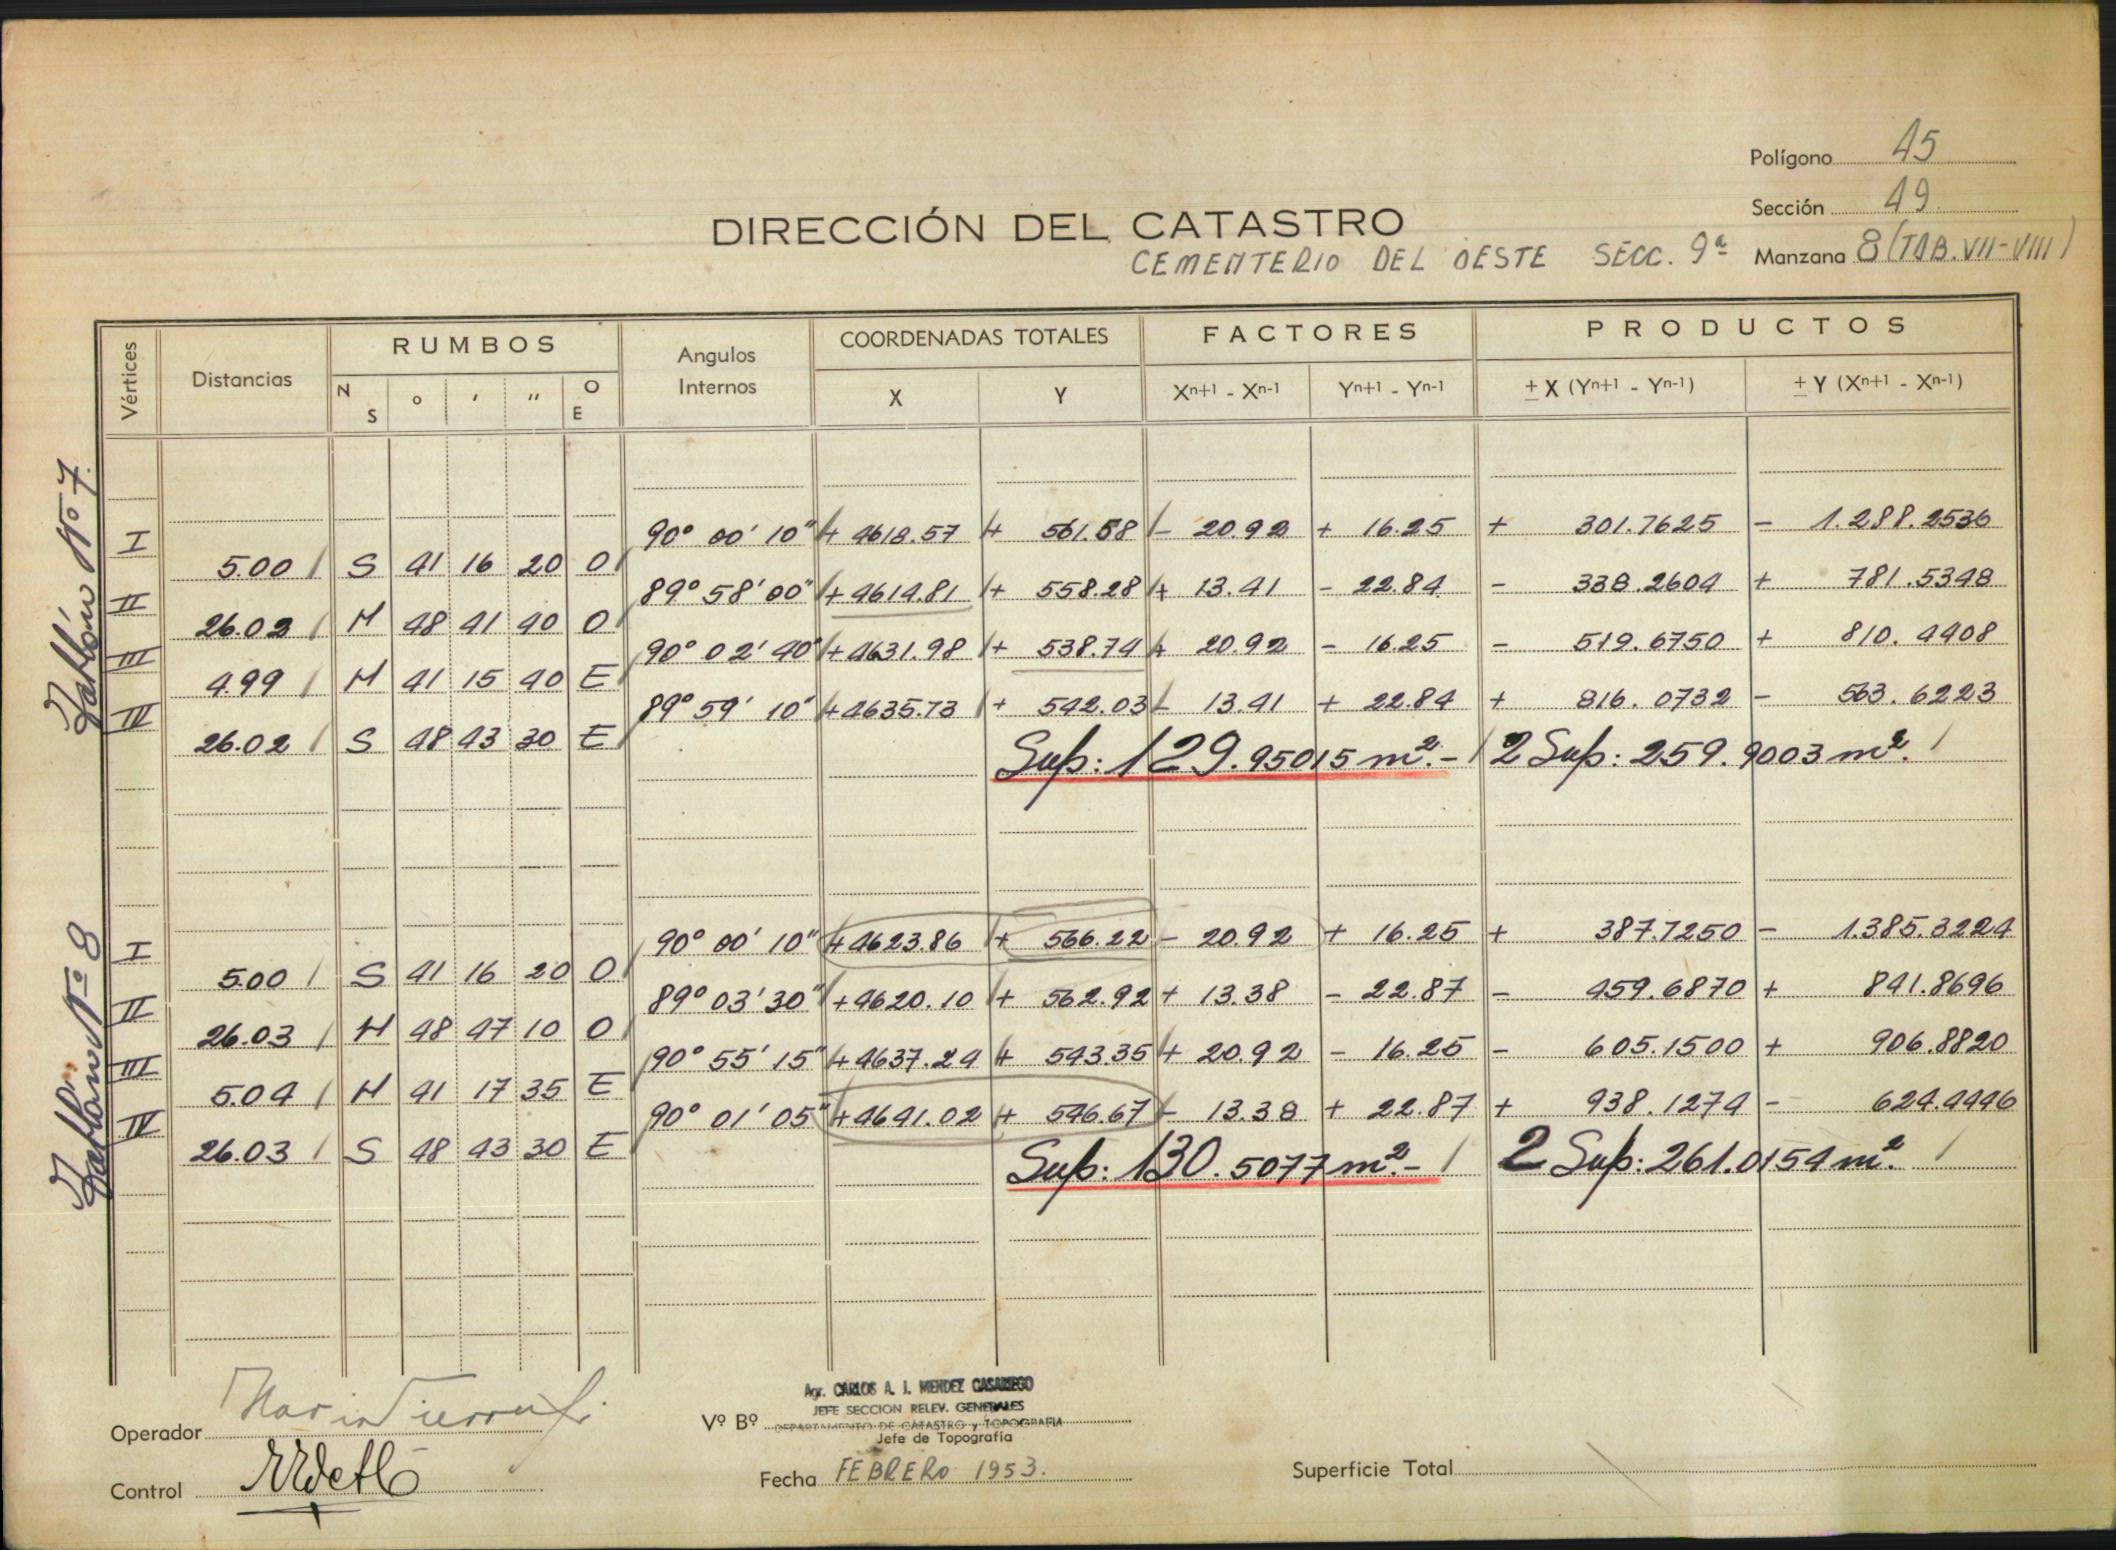 Polígono 45
Sección 49
DIRECCIÓN DEL CATASTRO
CEMENTERIO DEL OESTE SECC. 9ª Manzana 8 (TAB. VII-VIII)
Vértices Distancias RUMBOS Angulos Internos COORDENADAS TOTALES FACTORES PRODUCTOS
N S ° ' " O E X Y Xn+1 - Xn-1 Yn+1 - Yn-1 ± X (Yn+1 - Yn-1) ± Y (Xn+1 - Xn-1)
Tablón Nº 7.
I 90° 00' 10" + 4618.57 + 561.58 - 20.92 + 16.25 + 301.7625 - 1.288.2536
5.00 S 41 16 20 O
II 89° 58' 00" + 4614.81 + 558.28 + 13.41 - 22.84 - 338.2604 + 781.5348
26.02 N 48 41 40 O
III 90° 02' 40" + 4631.98 + 538.74 + 20.92 - 16.25 - 519.6750 + 810.4408
4.99 N 41 15 40 E
IV 89° 59' 10" + 4635.73 + 542.03 - 13.41 + 22.84 + 816.0732 - 563.6223
26.02 S 48 43 30 E
Sup: 129.95015 m².- 2 Sup: 259.9003 m².
Tablón Nº 8
I 90° 00' 10" + 4623.86 + 566.22 - 20.92 + 16.25 + 387.7250 - 1.385.3224
5.00 S 41 16 20 O
II 89° 03' 30" + 4620.10 + 562.92 + 13.38 - 22.87 - 459.6870 + 841.8696
26.03 N 48 47 10 O
III 90° 55' 15" + 4637.24 + 543.35 + 20.92 - 16.25 - 605.1500 + 906.8820
5.04 N 41 17 35 E
IV 90° 01' 05" + 4641.02 + 546.67 - 13.38 + 22.87 + 938.1274 - 624.4446
26.03 S 48 43 30 E
Sup: 130.5077 m².- 2 Sup: 261.0154 m².
Operador
Control
Vº Bº
Agr. CARLOS A. J. MENDEZ CASARIEGO
JEFE SECCION RELEV. GENERALES
DEPARTAMENTO DE CATASTRO y TOPOGRAFIA
Jefe de Topografía
Fecha FEBRERO 1953.
Superficie Total